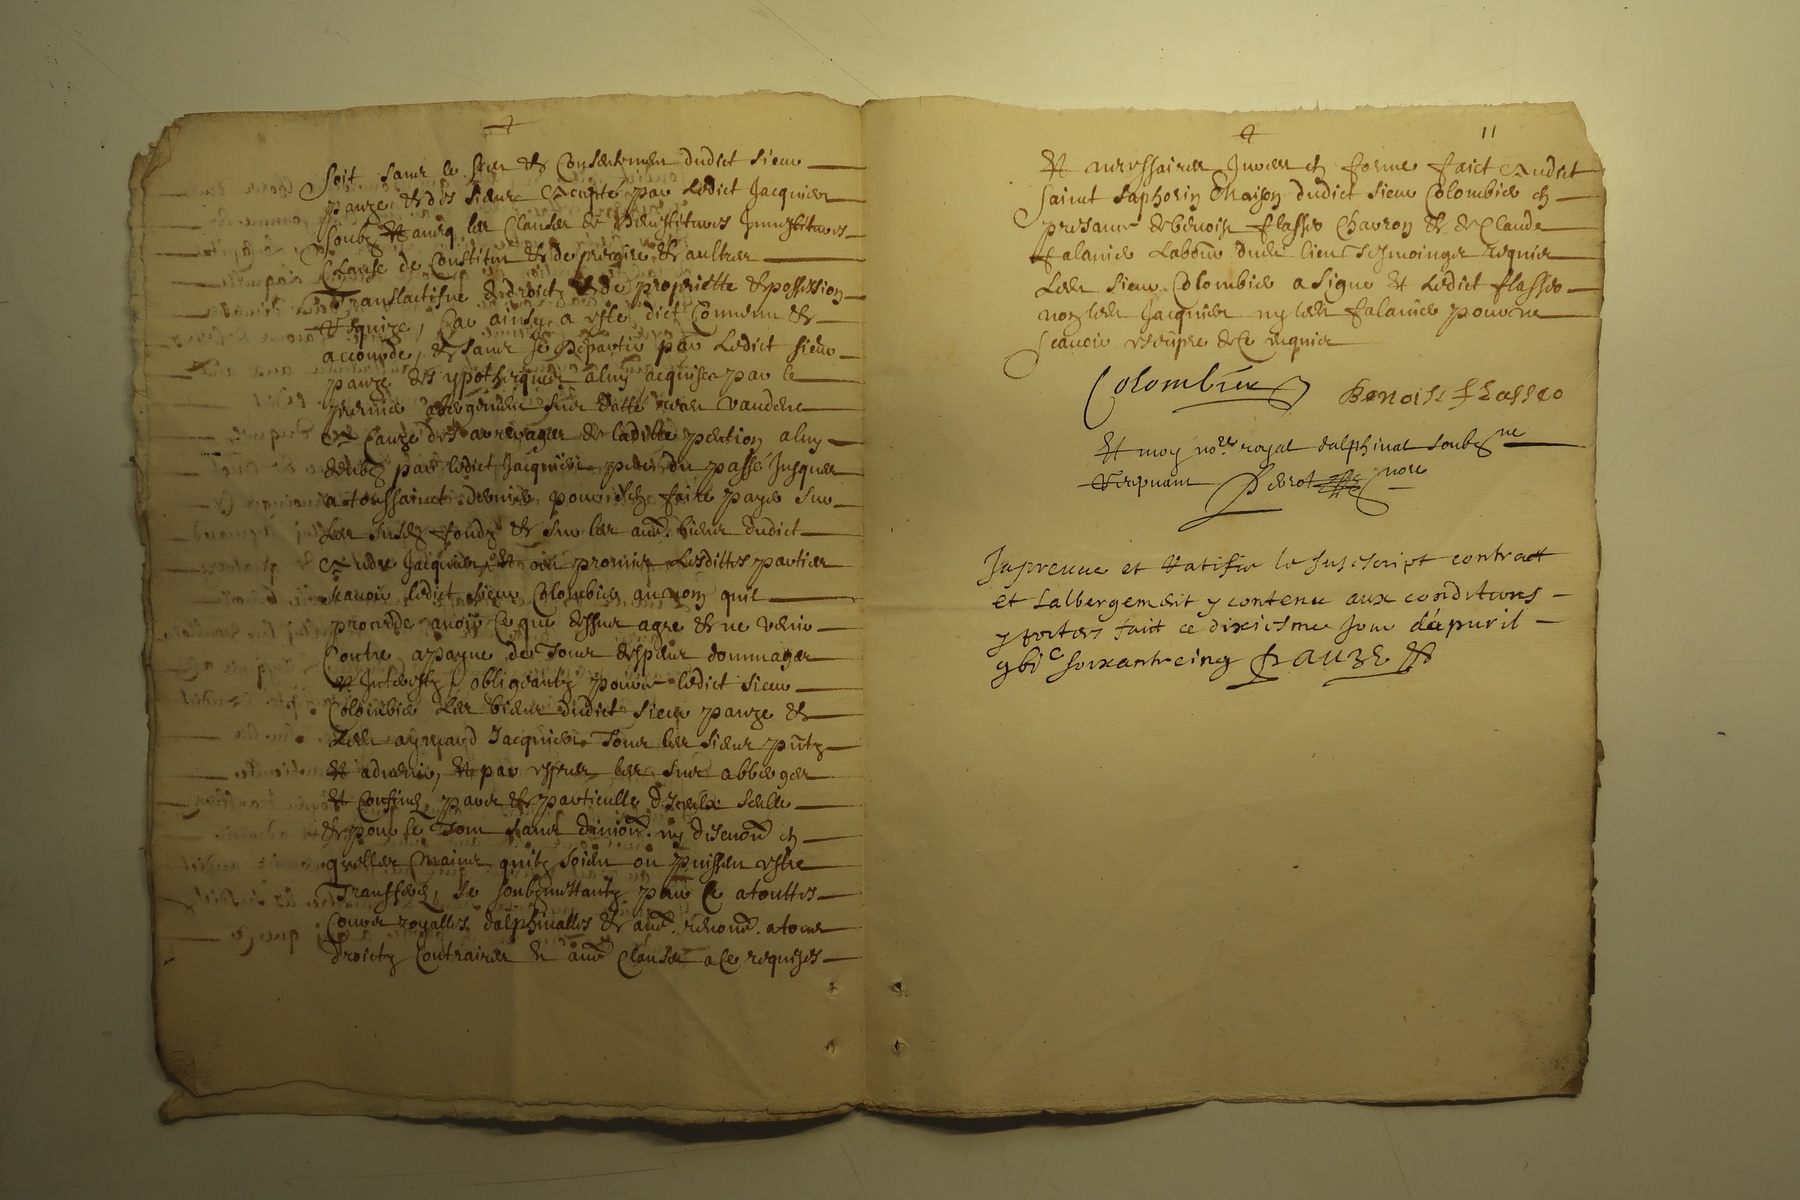 Soit sans le sceu et consentement dudict sieur
pauze et des siens accepté par ledict Jacquier
soubz et aveq les clauses de
Clause de constitut et de precaire et aultres
Translactifve de droict et de proprietté et possession
et requize, car ainsy a esté dict convenu et
accourdé, et sans se despartir par ledict sieur
pauze des ypotheques a luy acquises par le
premier albergement sus datté
a cauze des arreyrages de laditte pention a luy
deubz par ledict Jacquier du passé jusques
a toussainct dernier pour se faire payer sur
les susd fondz et sur les aues biens dudict
Jacquier, et ont promis lesdittes parties
scavoir ledict sieur Colombier au nom quil
procede avoir ce que dessus agré et ne venir
Contre a payne de tous despens dommages
et interestz obligeantz pour ledict sieur
Colombier les biens dudict sieur pauze et
led aymard Jacquier tous les siens pntz
et advenir, et par expres les sus abberges
et confines, pars et particulle dicelx seulle
et pour le tout sans divion ny discuon en
quelles mains quilz soien ou puissen estre
Transferes, se soubzmettantz pour ce a touttes
Cours royalles dalphinalles et aues renonc a tous
droictz contraires et aues clauses a ce requises
11
et necessaires en forme faict audict
Saint Saphorin Maison dudict sieur Colombier en
presance de benoist flasseo charon et de Claude
falavier dud lieu tesmoingz requis
Led sieur Colombier a signé et ledict flasseo
non led Jacquier ny led falavier pour ne
scavoir escripre de ce requis
Colombier Benoist flasseo
et moy nore royal dalphinal soubzne
Perrot nore
Japreuve et Ratifie le suscript contract
et Lalbergement y contenu aux conditions
y portees fait ce dixiesme jour dapuril
gbic soixante cinq PAUZE